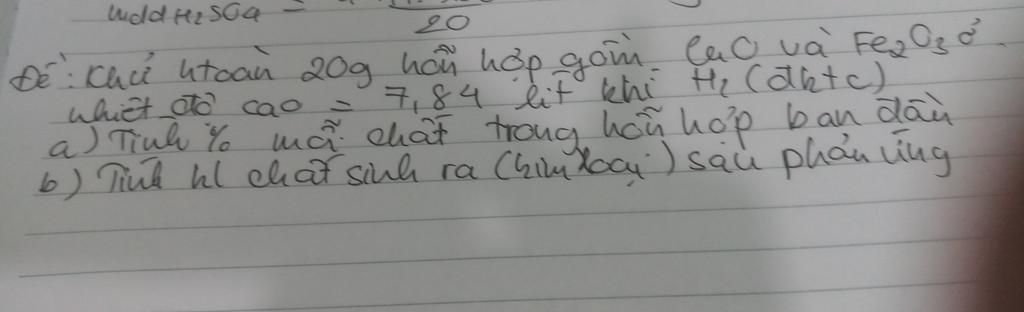 mddH2SO4 =
20
Đề: Khử htoàn 20g hỗn hợp gồm CuO và Fe2O3 ở
nhiệt độ cao = 7,84 lít khí H2 (đktc)
a) Tính % mỗi chất trong hỗn hợp ban đầu
b) Tính kl chất sinh ra (kim loại) sau phản ứng